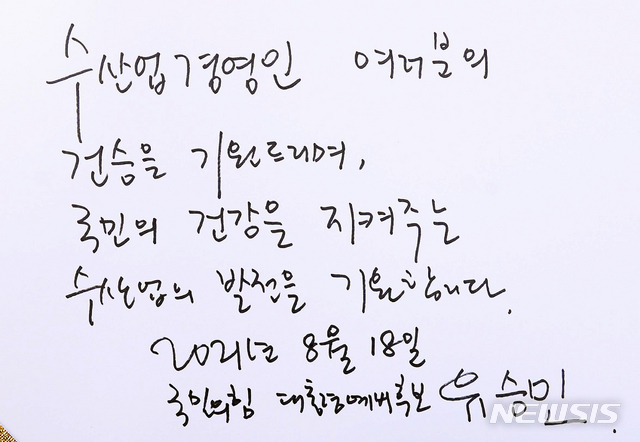 수산업경영인 여러분의
건승을 기원드리며,
국민의 건강을 지켜주는
수산업의 발전을 기원합니다.
2021년 8월 18일
국민의힘 대통령예비후보 유승민.
NEWSIS